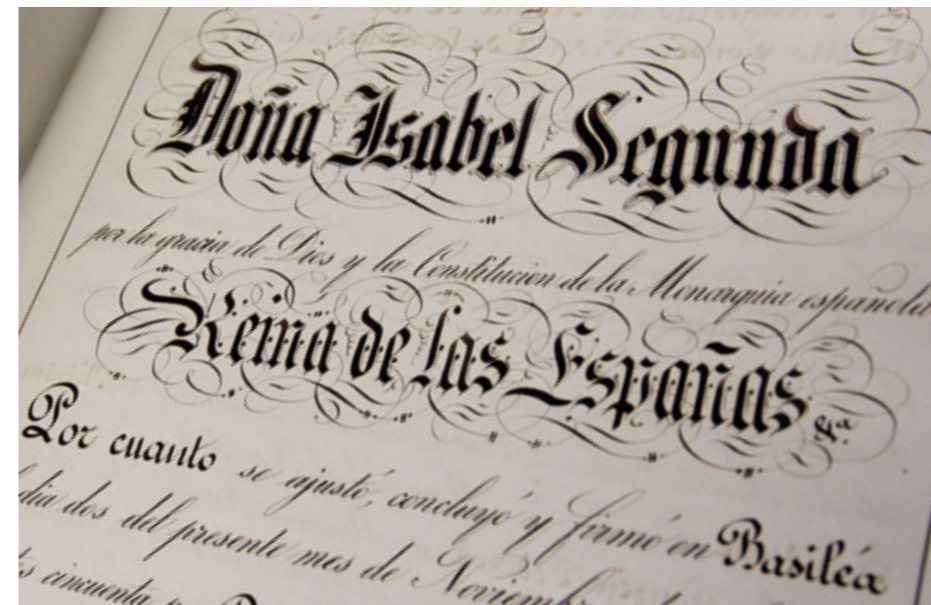 Doña Isabel Segunda
por la gracia de Dios y la Constitucion de la Monarquia española
Reina de las Españas &a
Por cuanto se ajustó, concluyó y firmó en Basiléa
dia dos del presente mes de Noviembre
cincuenta